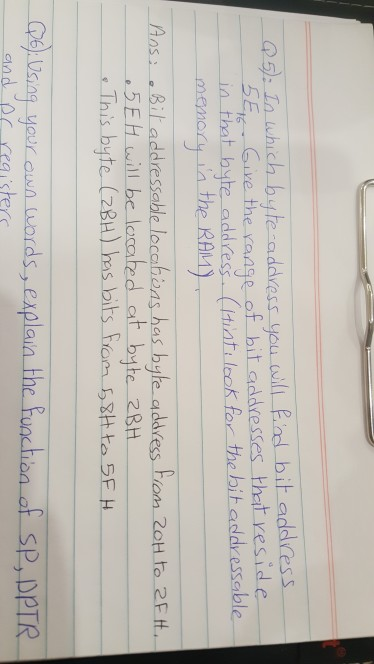 Q5): In which byte-address you will find bit address
5E16. Give the range of bit addresses that reside
in that byte address. (Hint: look for the bit addressable
memory in the RAM).
Ans: • Bit addressable locations has byte address from 20H to 2FH.
• 5EH will be located at byte 2BH
• This byte (2BH) has bits from 58H to 5FH
Q6): Using your own words, explain the function of SP, DPTR
and PC registers